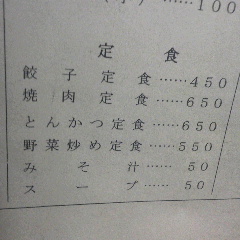 (小) ……100
定食
餃子定食……450
焼肉定食……650
とんかつ定食……650
野菜炒め定食……550
みそ汁……50
スープ……50